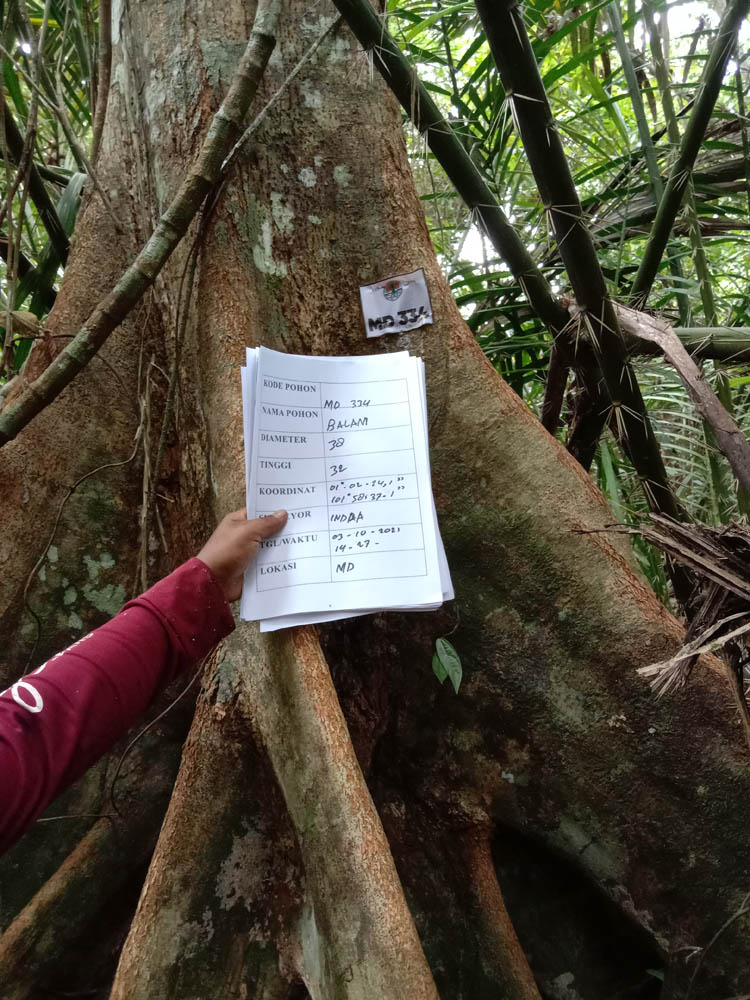 MD 334
KODE POHON
MD 334
NAMA POHON
BALAM
DIAMETER
38
TINGGI
32
KOORDINAT
01°. 02 - 14,1"
101° 58' 37-1"
INDRA
TGL/WAKTU
03-10-2021
14-27-
LOKASI
MD